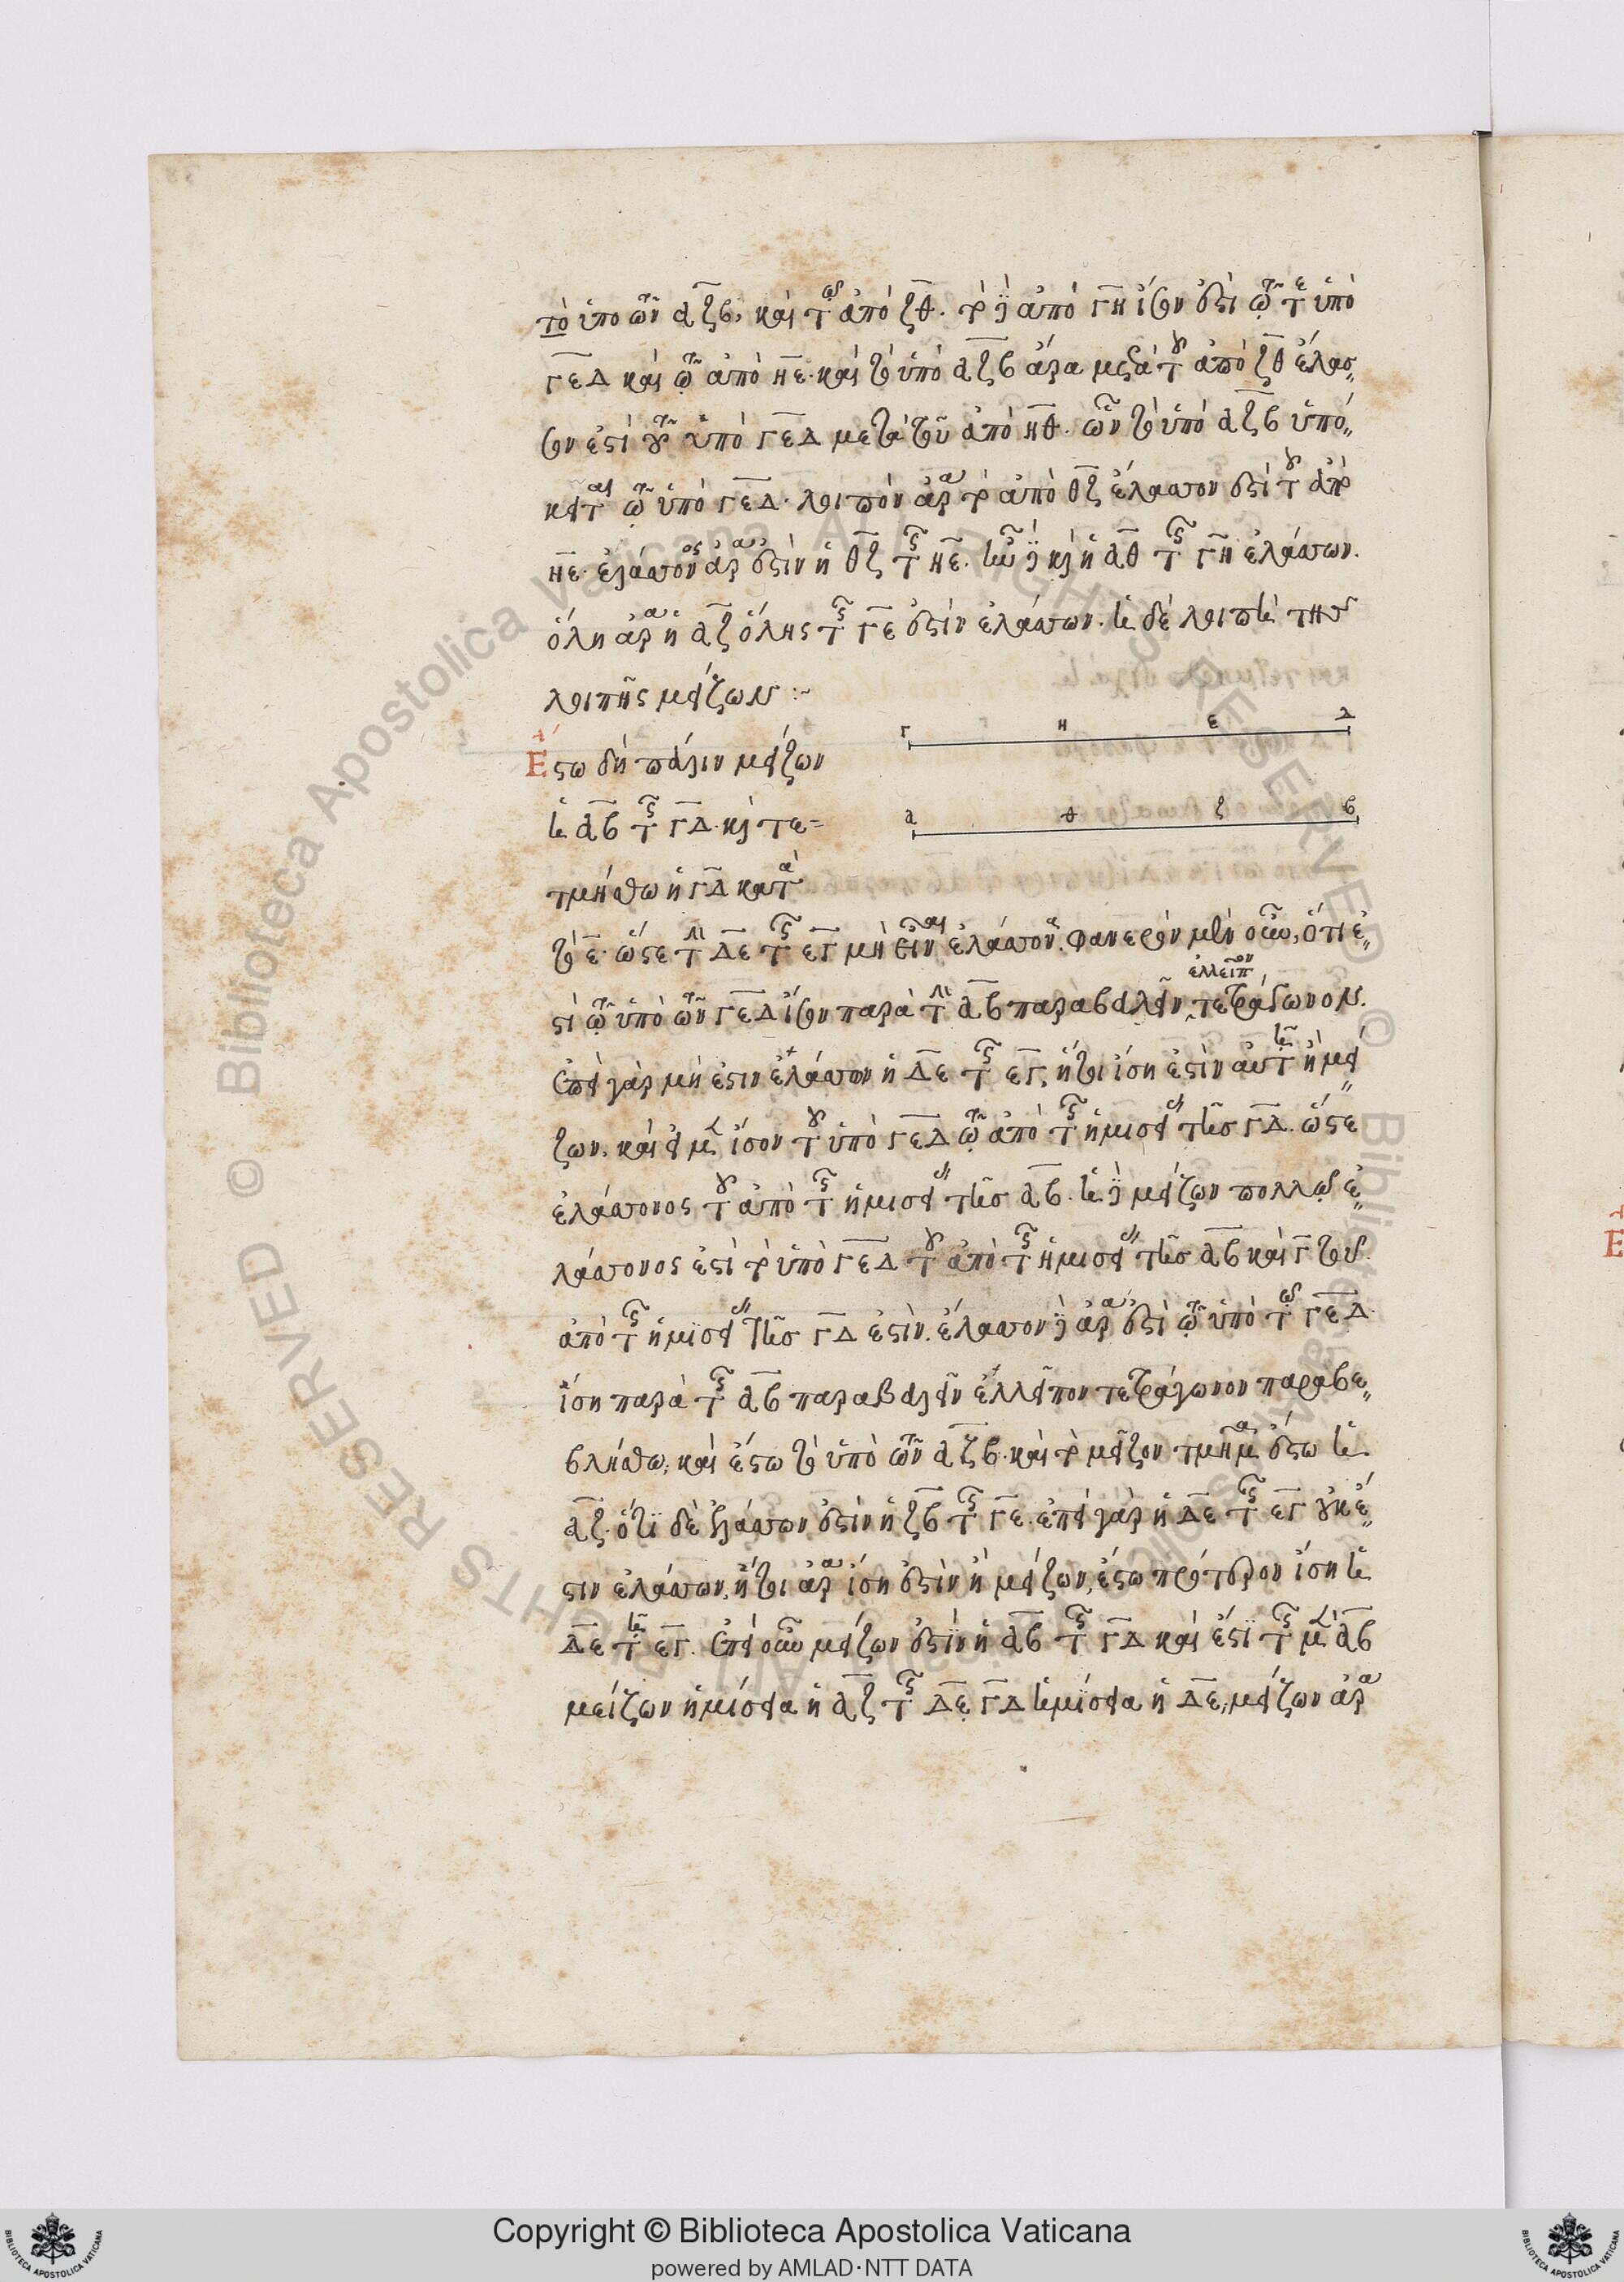 τὸ ὑπὸ τῶν ΑΖΒ, καὶ τῷ ἀπὸ ΖΘ. τὸ δὲ ἀπὸ ΓΗ ἴσον ἐστὶ τῷ τε ὑπὸ
ΓΕΔ καὶ τῷ ἀπὸ ΗΕ. καὶ τὸ ὑπὸ ΑΖΒ ἄρα μετὰ τοῦ ἀπὸ ΖΘ ἔλασ
σον ἐστὶ τοῦ ὑπὸ ΓΕΔ μετὰ τοῦ ἀπὸ ΗΘ. ὧν τὸ ὑπὸ ΑΖΒ ὑπό
κειται τῷ ὑπὸ ΓΕΔ. λοιπὸν ἄρα τὸ ἀπὸ ΘΖ ἔλαττον ἐστὶ τοῦ ἀπὸ
ΗΕ. ἄρα ἐστὶν ἡ ΘΖ τῆς ΗΕ. ἦν δὲ καὶ ἡ ΑΘ τῆς ΓΗ ἐλάττων.
ὅλη ἄρα ἡ ΑΖ ὅλης τῆς ΓΕ ἐστὶν ἐλάττων. ἡ δὲ λοιπὴ τῆς
λοιπῆς μείζων :~
Γ Η Ε Δ
Ἔστω δὴ πάλιν μείζων
Α Θ Ζ Β
ἡ ΑΒ τῆς ΓΔ. καὶ τε
τμήσθω ἡ ΓΔ κατὰ
τὸ Ε. ὥστε τὴν ΔΕ τῆς ΕΓ μὴ εἶναι ἐλάττονα. φανερὸν μὲν οὖν, ὅτι ἐ
στὶ τῷ ὑπὸ τῶν ΓΕΔ ἴσον παρὰ τὴν ΑΒ παραβαλεῖν ἐλλεῖπον τετράγωνον.
ἐπεὶ γὰρ μή ἐστιν ἐλάττων ἡ ΔΕ τῆς ΕΓ, ἤτοι ἴση ἐστὶν αὐτῇ ἢ μεί
ζων. καὶ εἰ μὲν ἴσον τοῦ ὑπὸ ΓΕΔ τῷ ἀπὸ τῆς ἡμισείας τῆς ΓΔ. ὥστε
ἐλάττονος τοῦ ἀπὸ τῆς ἡμισείας τῆς ΑΒ. ἡ δὲ μείζων πολλῷ ἐ
λάττονος ἐστὶ τὸ ὑπὸ ΓΕΔ τοῦ ἀπὸ τῆς ἡμισείας τῆς ΑΒ καὶ
ἀπὸ τῆς ἡμισείας τῆς ΓΔ ἐστὶν. ἔλαττον δὲ ἄρα ἐστὶ τῷ ὑπὸ τῶ ΓΕΔ
ἴση παρὰ τῆς ΑΒ παραβαλεῖν ἐλλεῖπον τετράγωνον παραβε
βλήσθω, καὶ ἔστω τὸ ὑπὸ τῶν ΑΖΒ. καὶ τὸ μεῖζον τμῆμα ἔστω ἡ
ΑΖ. ὅτι δὲ ἐλάττων ἐστὶν ἡ ΖΒ τῆς ΓΕ. ἐπεὶ γὰρ ἡ ΔΕ τῆς ΕΓ οὐκ ἔ
στιν ἐλάττων, ἤτοι ἄρα ἴση ἐστὶν ἢ μείζων, ἔστω πρότερον ἴση ἡ
ΔΕ τῇ ΕΓ. ἐπεὶ οὖν μείζων ἐστὶν ἡ ΑΒ τῆς ΓΔ καὶ ἐστὶ τῆς μὲν ΑΒ
μείζων ἡμίσεια ἡ ΑΖ τῆς ΔΕ ΓΔ ἡμίσεια ἡ ΔΕ, μείζων ἄρα
Copyright © Biblioteca Apostolica Vaticana
powered by AMLAD·NTT DATA